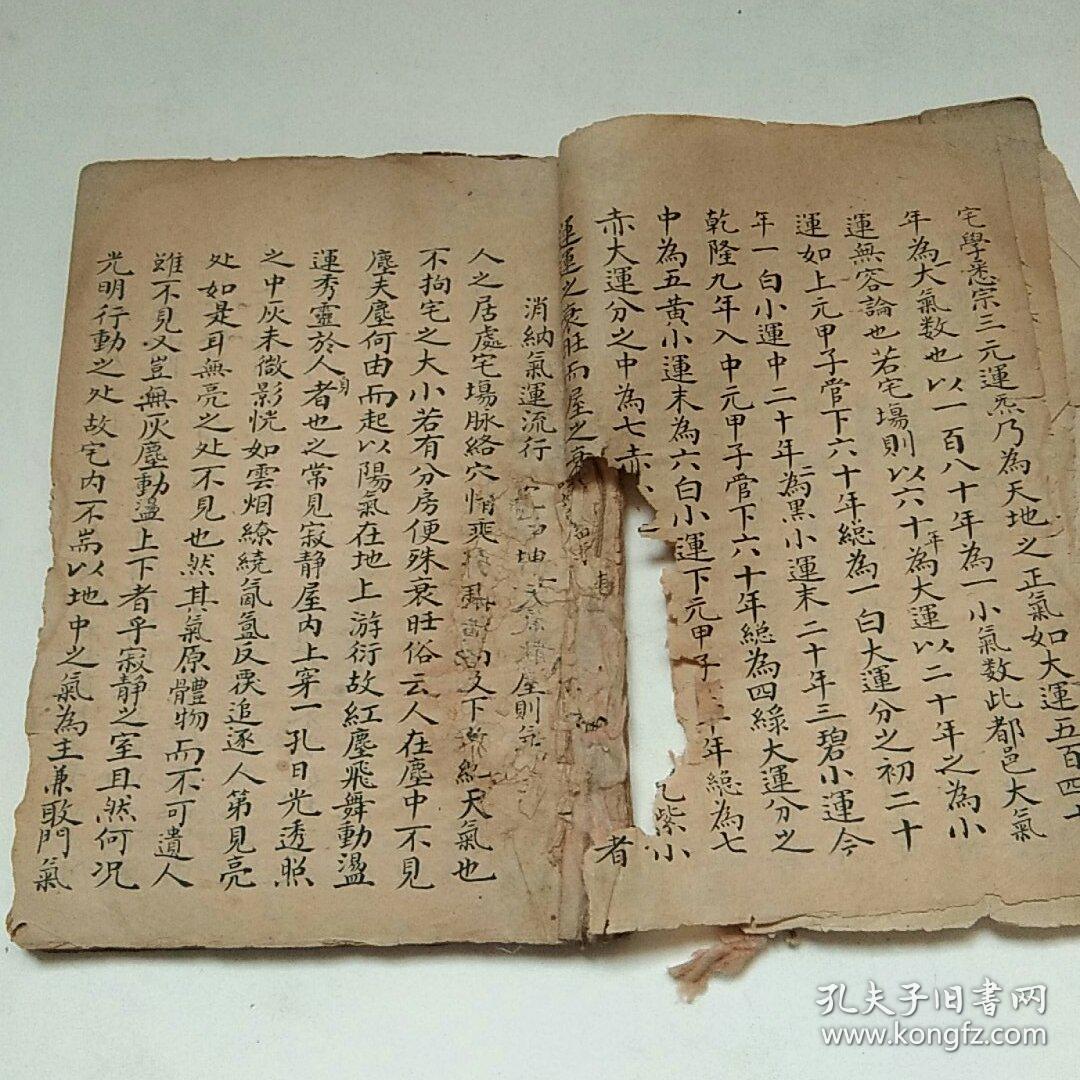 宅學悉宗三元運炁乃為天地之正氣如大運五百四十
年為大氣数也以一百八十年為一小氣数此都邑大氣
運無容論也若宅塲則以六十年為大運以二十年之為小
運如上元甲子管下六十年緫為一白大運分之初二十
年一白小運中二十年二為黑小運末二十年三碧小運今
乾隆九年入中元甲子管下六十年緫為四緑大運分之
中為五黄小運末為六白小運下元甲子 年緫為七
赤大運分之中為七赤 紫小
運運之衰旺而屋之 者
消納氣運流行 坤 屋則
人之居處宅塲脉絡穴情 下 天氣也
不拘宅之大小若有分房便殊衰旺俗云人在塵中不見
塵夫塵何由而起以陽氣在地上游衍故紅塵飛舞動盪
運秀靈於人身者也之常見寂静屋内上穿一孔日光透照
之中灰未微影恍如雲烟繚繞氤氲反覆追逐人第見亮
处如是耳無亮之处不見也然其氣原體物而不可遺人
雖不見又豈無灰塵動盪上下者乎寂静之室且然何况
光明行動之处故宅内不耑以地中之氣為主兼敢門氣
孔夫子旧书网
www.kongfz.com